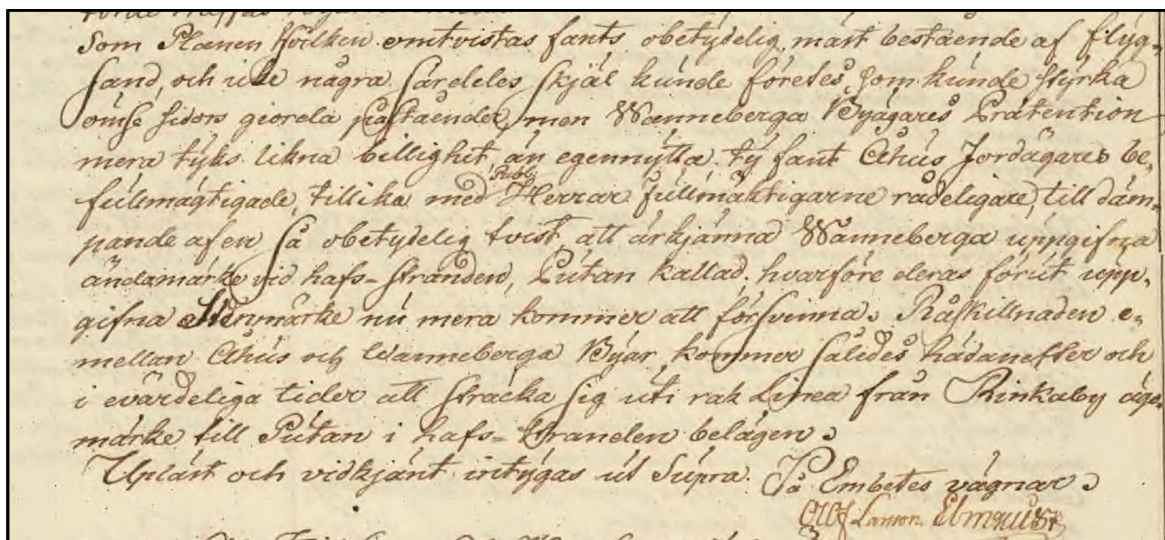 Som Planen hvilken omtvistas fants obetydelig, mäst bestående af flyg-
sand, och icke några särdeles skjäl kunde företes, som kunde styrka
ömse sidors giorda påståender, men Wanneberga Byägares Prætention
mera tyks likna billighit, än egennytta. ty fant Åhus Jordägares be-
fullmägtigade, tillika med Publ. Herrar fullmäktigarne rådeligare, till däm-
pande af en så obetydelig tvist, att ärkjänna Wanneberga uppgifna
ändamärke vid hafs-stranden, Putan kallad, hvarföre deras förut upp-
gifna Stenmärke nu mera kommer att försvinna. Råskillnaden e-
mellan Åhus och Wanneberga Byar kommer således hädanefter och
i evärdeliga tider att sträcka sig uti rak Linea från Rinkaby äge-
märke till Putan i hafs-stranden belägen.
Upläst och vidkjänt intygas ut Supra. På Embetes vägnar.
Olof Larsson